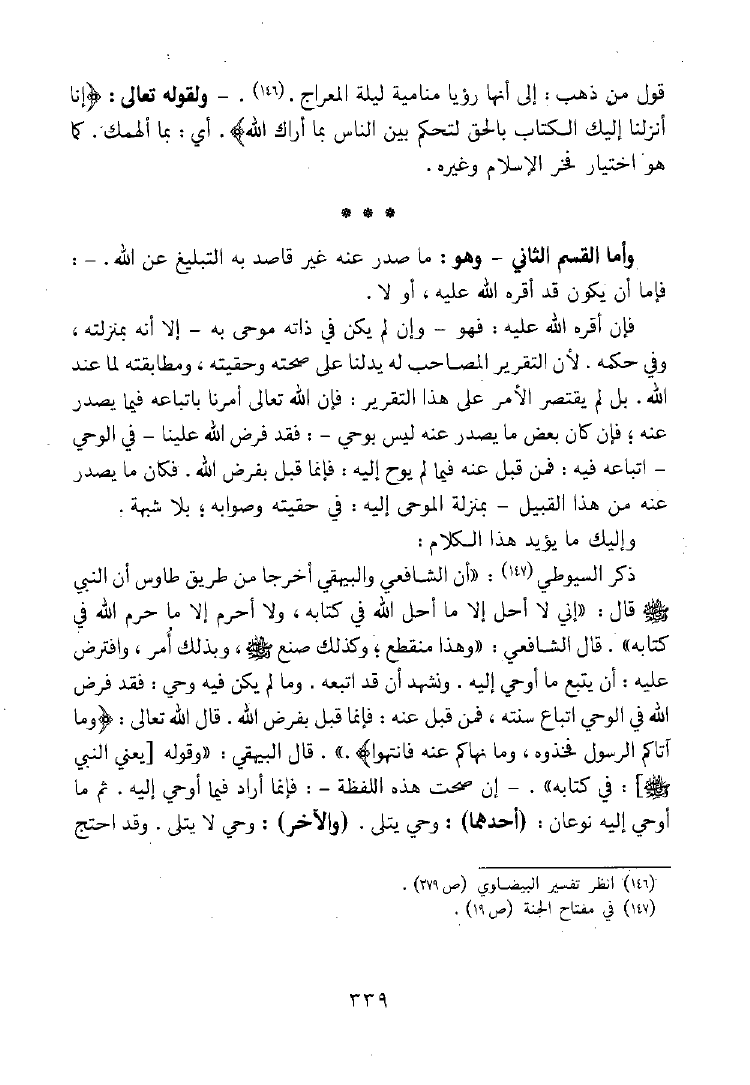 قول من ذهب : إلى أنها رؤيا منامية ليلة المعراج . (١٤٦) . – ولقوله تعالى : ﴿إنا
أنزلنا إليك الكتاب بالحق لتحكم بين الناس بما أراك الله﴾ . أي : بما ألهمك . كما
هو اختيار فخر الإسلام وغيره .
* * *
وأما القسم الثاني – وهو : ما صدر عنه غير قاصد به التبليغ عن الله . – :
فإما أن يكون قد أقره الله عليه ، أو لا .
فإن أقره الله عليه : فهو – وإن لم يكن في ذاته موحى به – إلا أنه بمنزلته ،
وفي حكمه . لأن التقرير المصاحب له يدلنا على صحته وحقيته ، ومطابقته لما عند
الله . بل لم يقتصر الأمر على هذا التقرير : فإن الله تعالى أمرنا باتباعه فيما يصدر
عنه ؛ فإن كان بعض ما يصدر عنه ليس بوحي – : فقد فرض الله علينا – في الوحي
– اتباعه فيه : فمن قبل عنه فيما لم يوح إليه : فإنما قبل بفرض الله . فكان ما يصدر
عنه من هذا القبيل – بمنزلة الموحى إليه : في حقيته وصوابه ؛ بلا شبهة .
وإليك ما يؤيد هذا الكلام :
ذكر السيوطي (١٤٧) : «أن الشافعي والبيهقي أخرجا من طريق طاوس أن النبي
ﷺ قال : «إني لا أحل إلا ما أحل الله في كتابه ، ولا أحرم إلا ما حرم الله في
كتابه» . قال الشافعي : «وهذا منقطع ؛ وكذلك صنع ﷺ ، وبذلك أُمر ، وافترض
عليه : أن يتبع ما أوحي إليه . ونشهد أن قد اتبعه . وما لم يكن فيه وحي : فقد فرض
الله في الوحي اتباع سنته ، فمن قبل عنه : فإنما قبل بفرض الله . قال الله تعالى : ﴿وما
آتاكم الرسول فخذوه ، وما نهاكم عنه فانتهوا﴾ .» . قال البيهقي : «وقوله [يعني النبي
ﷺ] : في كتابه» . – إن صحت هذه اللفظة – : فإنما أراد فيما أوحي إليه . ثم ما
أوحي إليه نوعان : (أحدهما) : وحي يتلى . (والآخر) : وحي لا يتلى . وقد احتج
(١٤٦) انظر تفسير البيضاوي (ص ٢٧٩) .
(١٤٧) في مفتاح الجنة (ص ١٩) .
٣٣٩